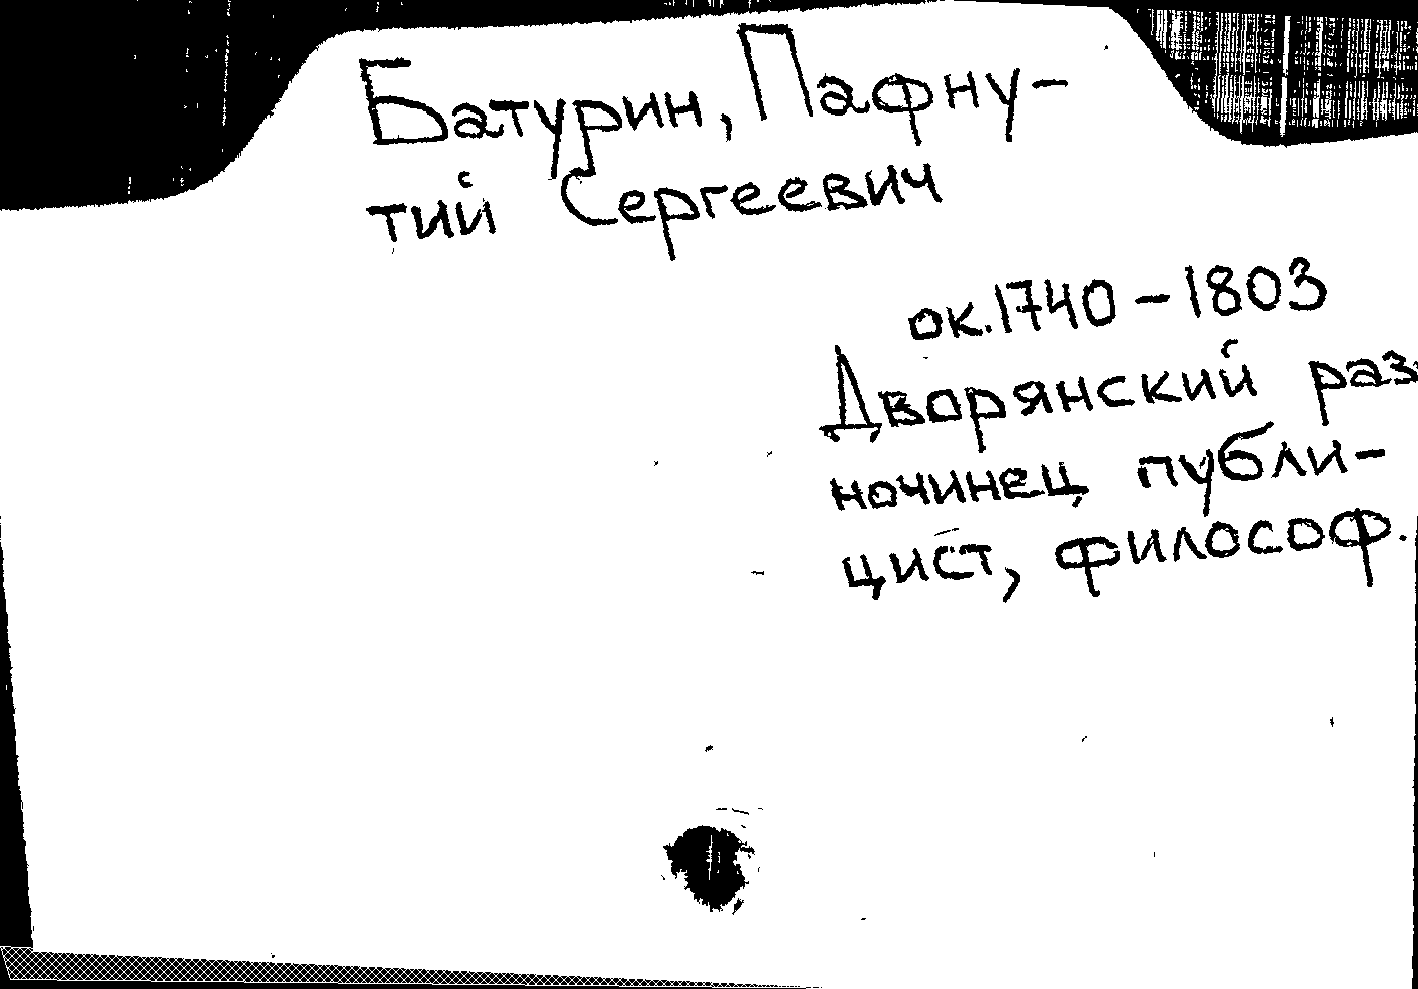 Батурин, Пафну-
тий Сергеевич
ок. 1740 - 1803
Дворянский раз
ночинец публи-
цист, философ.